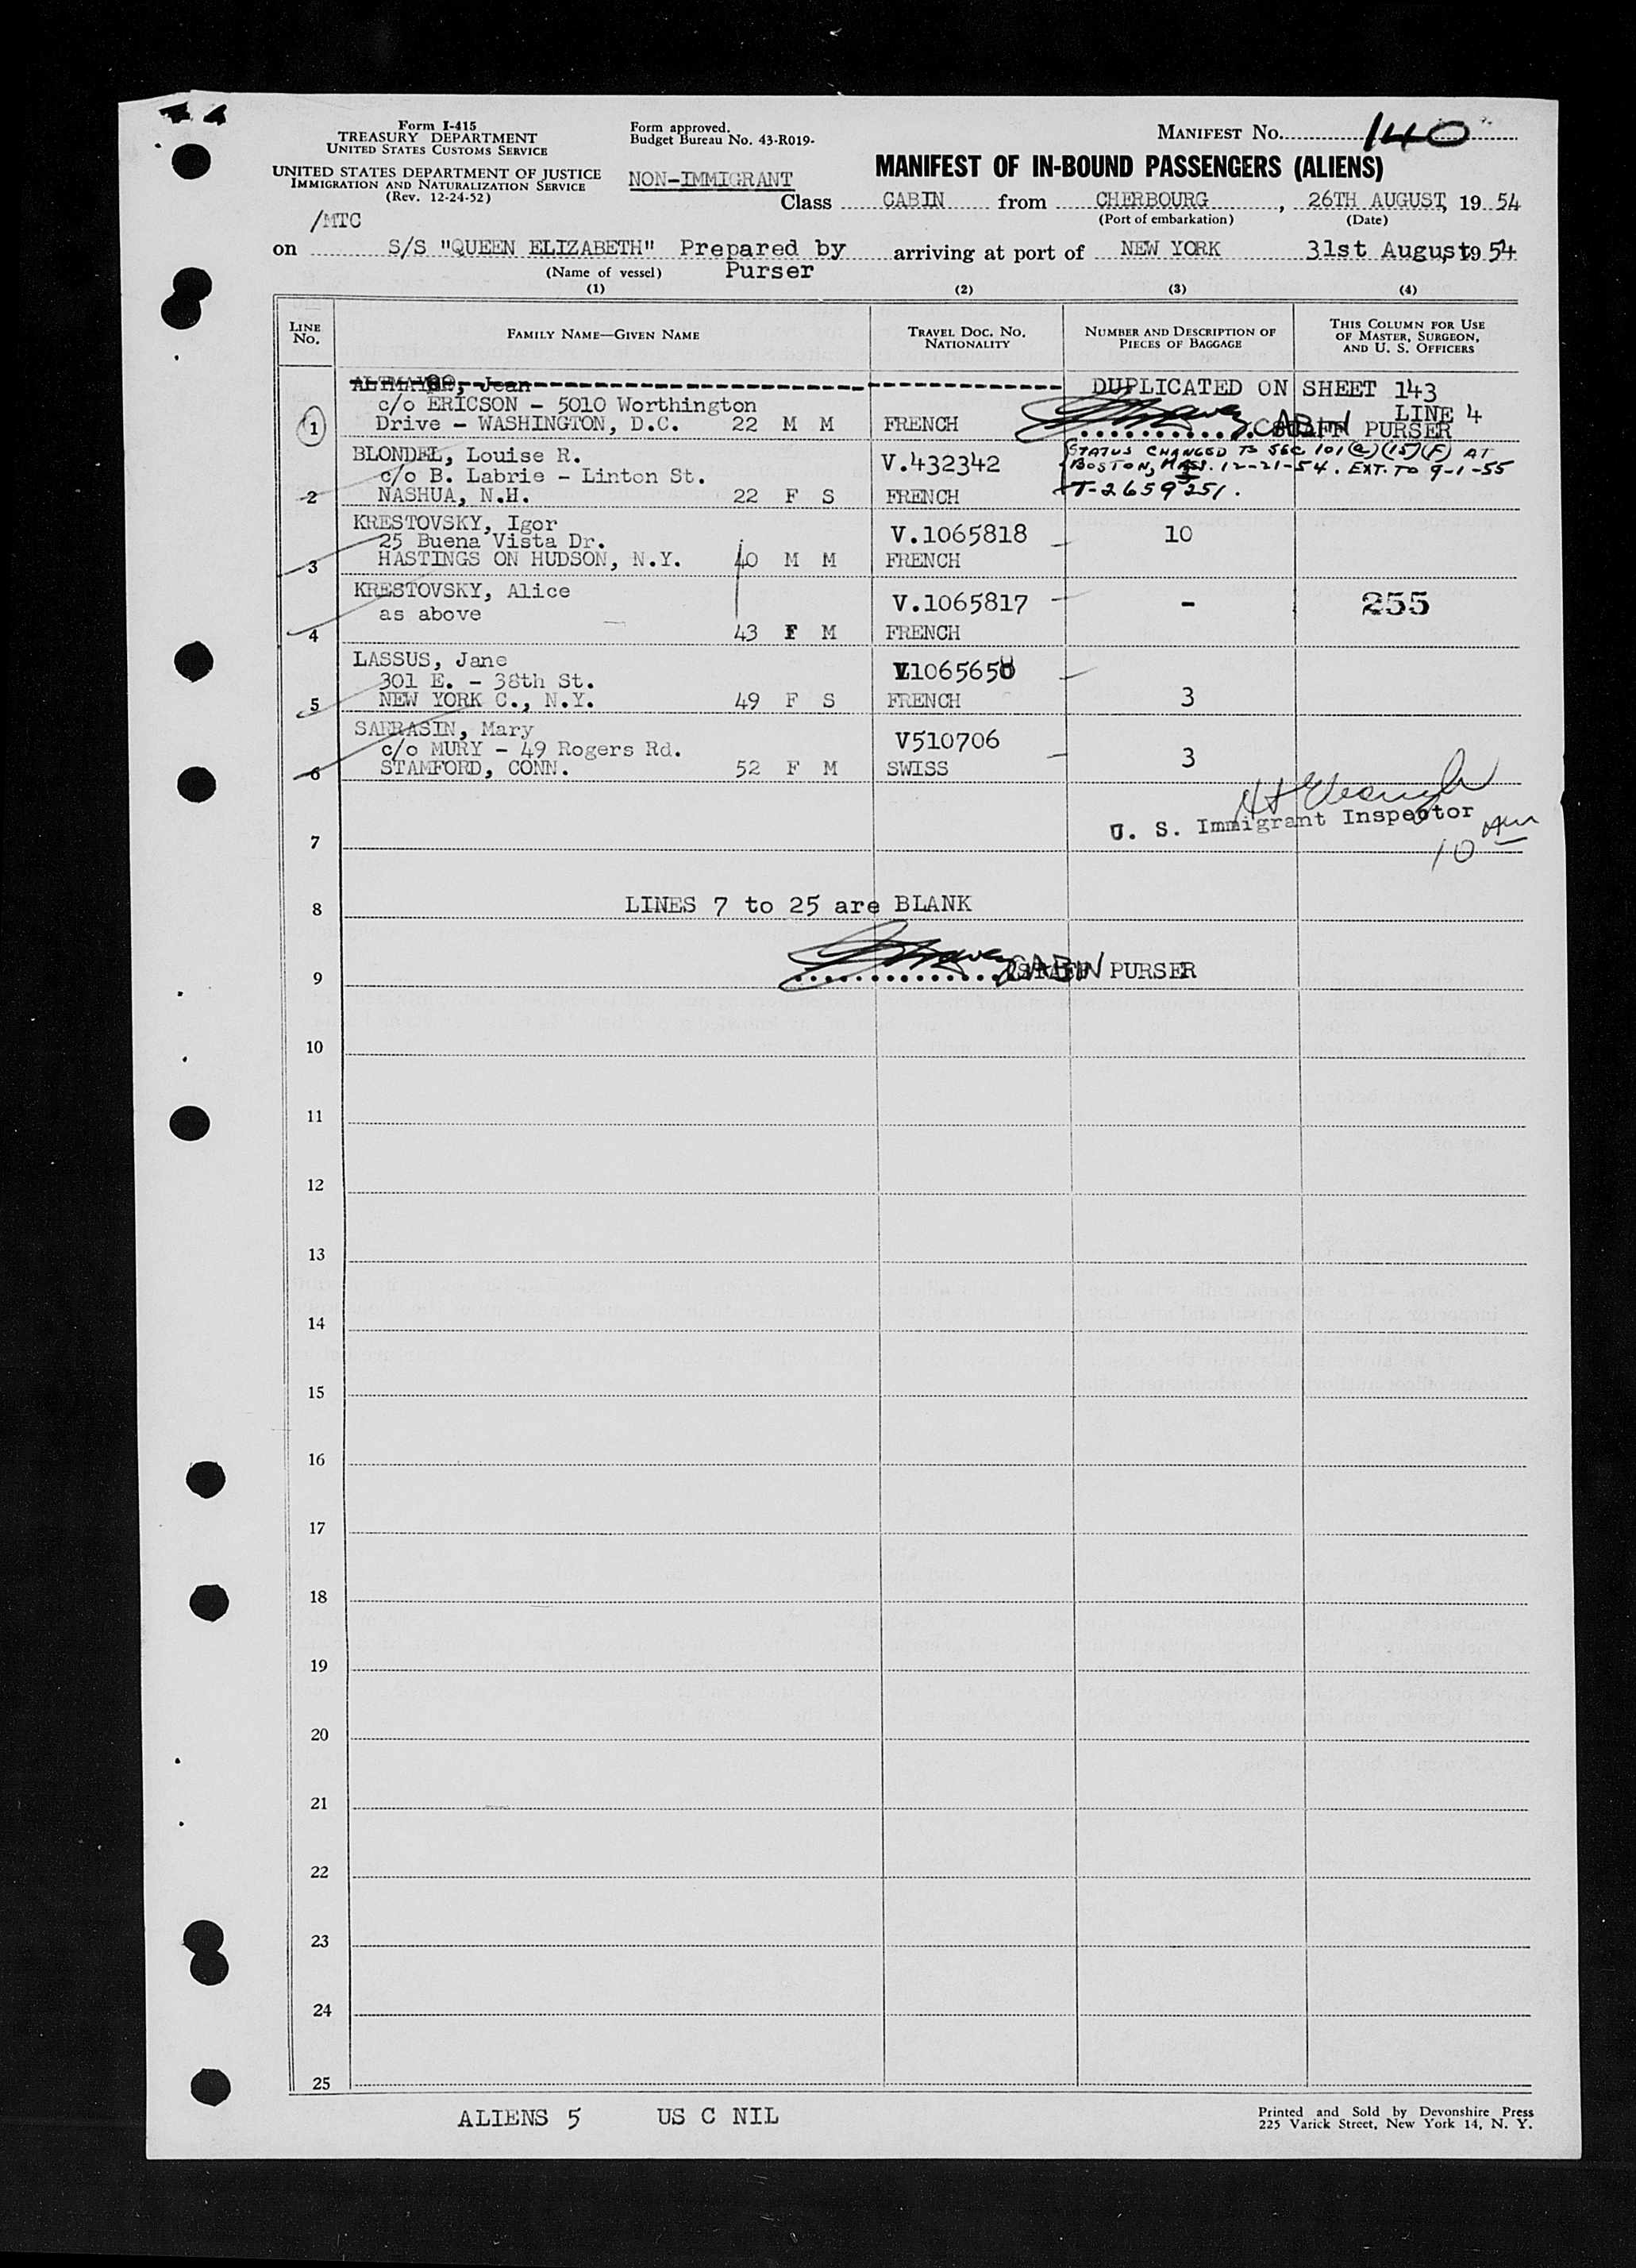 Form I-415
TREASURY DEPARTMENT
UNITED STATES CUSTOMS SERVICE
UNITED STATES DEPARTMENT OF JUSTICE
IMMIGRATION AND NATURALIZATION SERVICE
(Rev. 12-24-52)
/MTC
Form approved.
Budget Bureau No. 43-R019-
NON-IMMIGRANT
MANIFEST NO. 140
MANIFEST OF IN-BOUND PASSENGERS (ALIENS)
Class CABIN from CHERBOURG, 26TH AUGUST, 19 54
(Port of embarkation) (Date)
on S/S "QUEEN ELIZABETH" Prepared by Purser arriving at port of NEW YORK 31st August, 19 54
(Name of vessel)
(1) (2) (3) (4)
LINE NO. FAMILY NAME—GIVEN NAME TRAVEL DOC. NO. NATIONALITY NUMBER AND DESCRIPTION OF PIECES OF BAGGAGE THIS COLUMN FOR USE OF MASTER, SURGEON, AND U. S. OFFICERS
Jean DUPLICATED ON SHEET 143
c/o ERICSON - 5010 Worthington LINE 4
1 Drive - WASHINGTON, D.C. 22 M M FRENCH CABIN PURSER
BLONDEL, Louise R. V.432342 STATUS CHANGED TO SEC 101(a)(15)(F) AT
c/o B. Labrie - Linton St. BOSTON, MASS. 12-21-54. EXT. TO 9-1-55
2 NASHUA, N.H. 22 F S FRENCH T-2659251.
KRESTOVSKY, Igor
25 Buena Vista Dr. V.1065818 10
3 HASTINGS ON HUDSON, N.Y. 40 M M FRENCH
KRESTOVSKY, Alice V.1065817 - 255
as above
4 43 F M FRENCH
LASSUS, Jane
301 E. - 38th St.
5 NEW YORK C., N.Y. 49 F S FRENCH 3
SARRASIN, Mary V510706
c/o MURY - 49 Rogers Rd. 3
6 STAMFORD, CONN. 52 F M SWISS
U. S. Immigrant Inspector
7 10 Am
8 LINES 7 to 25 are BLANK
9 CABIN PURSER
10
11
12
13
14
15
16
17
18
19
20
21
22
23
24
25
ALIENS 5 US C NIL
Printed and Sold by Devonshire Press
225 Varick Street, New York 14, N. Y.